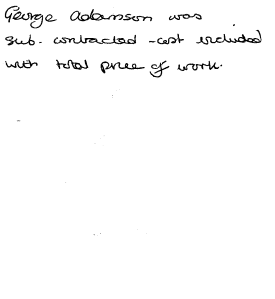 George Adamson was
sub. contracted - cost included
with total price of work.